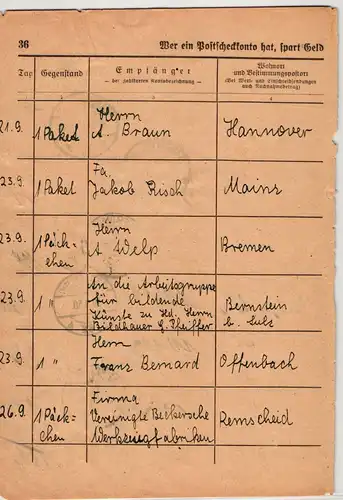 36 Wer ein Postscheckkonto hat, spart Geld
Tag Gegenstand Empfänger Wohnort
— bei zahlkarten Kontobezeichnung — und Bestimmungspostort
(Bei Wert- und Einschreibsendungen
auch Nachnahmebetrag)
Herrn
21.9. 1 Paket A. Braun Hannover
Fa.
23.9. 1 Paket Jakob Risch Mainz
Herrn
23.9. 1 Päck- A Welp Bremen
chen
An die Arbeitsgruppe
23.9. 1 " für bildende Bernstein
Künste zu Hd. Herrn b. Sulz
Bildhauer G. Pfeiffer
Herrn
23.9. 1 " Franz Bernard Offenbach
Firma
26.9. 1 Päck= Vereinigte Beckersche Remscheid
chen Werkzeugfabriken